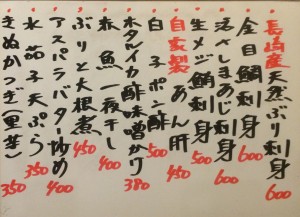 長崎産天然ぶり刺身 600
金目鯛刺身 600
活〆しまあじ刺身 600
生メジ鮪刺身 500
自家製あん肝 450
白子ポン酢 500
ホタルイカ酢味噌かけ 380
赤魚一夜干し 400
ぶりと大根煮 450
アスパラバター炒め 400
水茄子天ぷら 350
きぬかつぎ(里芋) 350